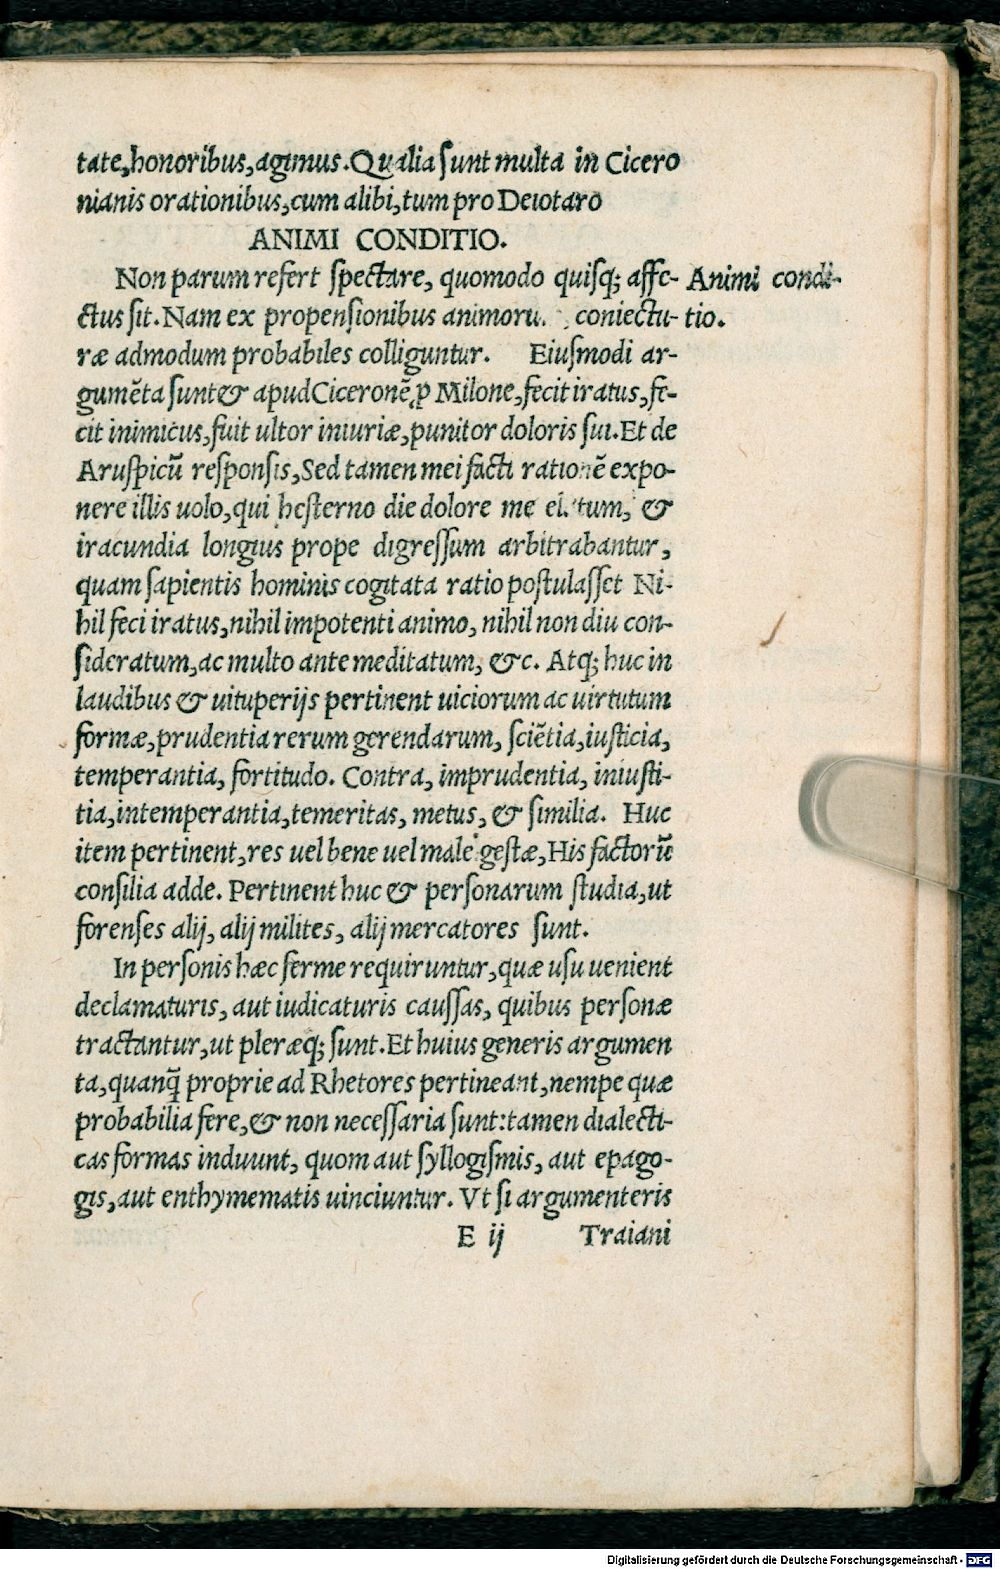 tate,honoribus,agimus.Qualia sunt multa in Cicero
nianis orationibus,cum alibi,tum pro Deiotaro
ANIMI CONDITIO.
Non parum refert spectare, quomodo quisq; affe-
Animi condi-
ctus sit. Nam ex propensionibus animorū. coniectu-
tio.
ræ admodum probabiles colliguntur. Eiusmodi ar-
gumēta sunt & apud Ciceronē ꝓ Milone, fecit iratus, fe-
cit inimicus, fuit ultor iniuriæ, punitor doloris sui. Et de
Aruspicū responsis, Sed tamen mei facti rationē expo-
nere illis uolo, qui hesterno die dolore me elatum, &
iracundia longius prope digressum arbitrabantur,
quam sapientis hominis cogitata ratio postulasset Ni-
hil feci iratus, nihil impotenti animo, nihil non diu con-
sideratum, ac multo ante meditatum, &c. Atq; huc in
laudibus & uituperijs pertinent uiciorum ac uirtutum
formæ, prudentia rerum gerendarum, sciētia, iusticia,
temperantia, fortitudo. Contra, imprudentia, iniusti-
tia, intemperantia, temeritas, metus, & similia. Huc
item pertinent, res uel bene uel male gestæ, His factorū
consilia adde. Pertinent huc & personarum studia, ut
forenses alij, alij milites, alij mercatores sunt.
In personis hæc ferme requiruntur, quæ usu uenient
declamaturis, aut iudicaturis caussas, quibus personæ
tractantur, ut pleræq; sunt. Et huius generis argumen
ta, quanq̄ proprie ad Rhetores pertineant, nempe quæ
probabilia fere, & non necessaria sunt: tamen dialecti-
cas formas induunt, quom aut syllogismis, aut epago-
gis, aut enthymematis uinciuntur. Vt si argumenteris
E ij Traiani
Digitalisierung gefördert durch die Deutsche Forschungsgemeinschaft - DFG